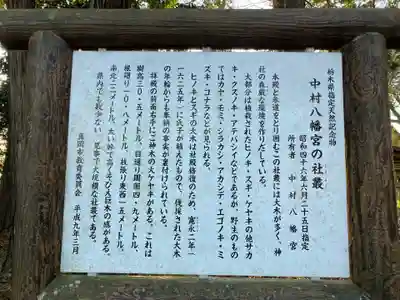 栃木県指定天然記念物
中村八幡宮の社叢
昭和四十六年六月二十五日指定
所有者 中村八幡宮
本殿と参道をとり囲むこの社叢には大木が多く、神
社の森厳な環境を作りだしている。
大部分は植栽されたヒノキ・スギ・ケヤキの他サカ
キ・クスノキ・アテバシイなどであるが、野生のもの
ではカヤ・モミ・シラカシ・アカシデ・エゴノキ・ミ
ズキ・コナラなどが見られる。
ヒノキとスギの大木は社殿修復のため、寛永二年
(一六二五年)に氏子が植えたもので、伐採された大木
の年輪からも奉納の事実が裏付けられている。
拝殿の前面右手にご神木の大ケヤキがある。これは
樹高三〇・五メートル、目通り周囲四・九メートル、
根廻り一〇・八メートル、枝張り東西一五メートル、
南北二二メートル、太い幹で高くそびえ巨木の感がある。
県内でも数少ない、見事で大規模な社叢である。
平成九年三月
真岡市教育委員会